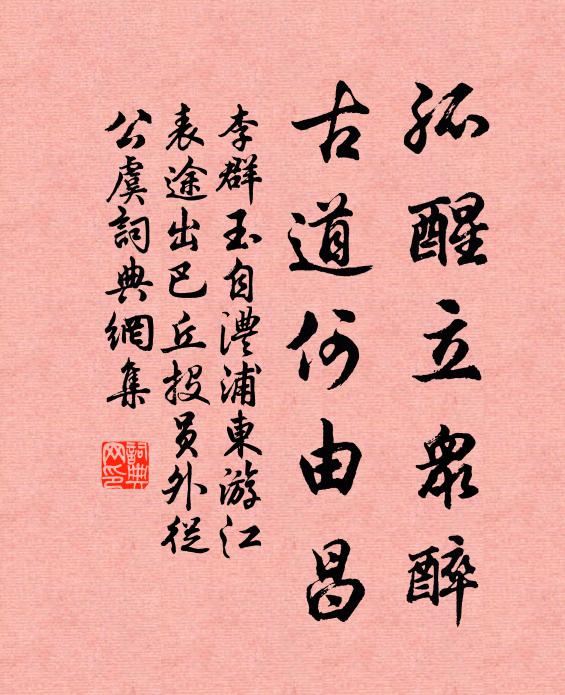 孤醒立眾醉
古道何由昌
李群玉自澧浦東游江
表途出巴丘投員外從
公虞詞典網集
詞典網印